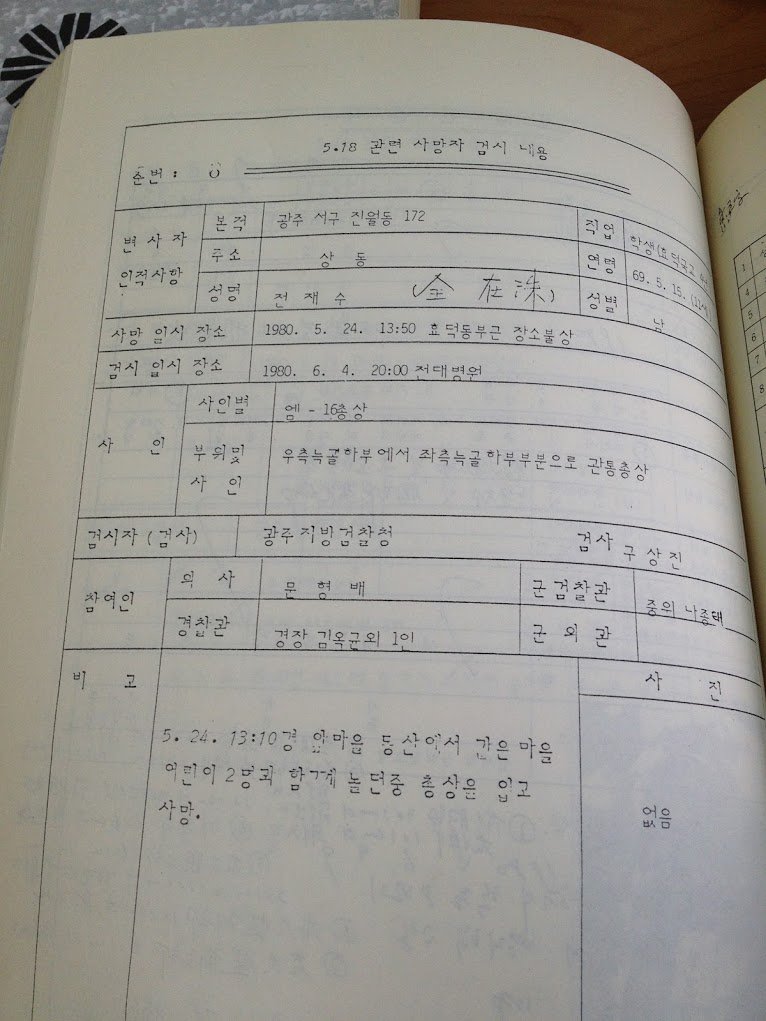 5.18 관련 사망자 검시 내용
순번 :
변사자 인적사항
본적 광주 서구 진월동 172
직업 학생(효덕국교
주소 상 동
연령 69. 5. 15. (11세)
성명 전 재 수 (全 在 洙)
성별 남
사망 일시 장소 1980. 5. 24. 13:50 효덕동부근 장소불상
검시 일시 장소 1980. 6. 4. 20:00 전대병원
사 인
사인별 엠 - 16총상
부위및 사 인 우측늑골하부에서 좌측늑골하부부분으로 관통총상
검시자 (검사) 광주지방검찰청 검사 구상진
참여인
의 사 문 형 배
군검찰관 중위 나종태
경찰관 경장 김옥균외 1인
군 의 관
비 고
사 진
5. 24. 13:10경 앞마을 동산에서 같은 마을
어린이 2명과 함께 놀던중 총상을 입고
사망.
없음